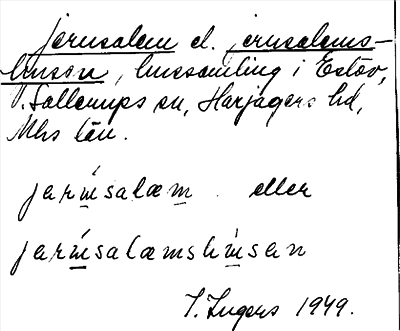 Jerusalem el. Jerusalems-
husen, hussamling i Eslöv,
V. Sallerups sn, Harjagers hd,
Mhs län.
jarúsalæm eller
jarúsalæmshúsan
I. Ingers 1949.